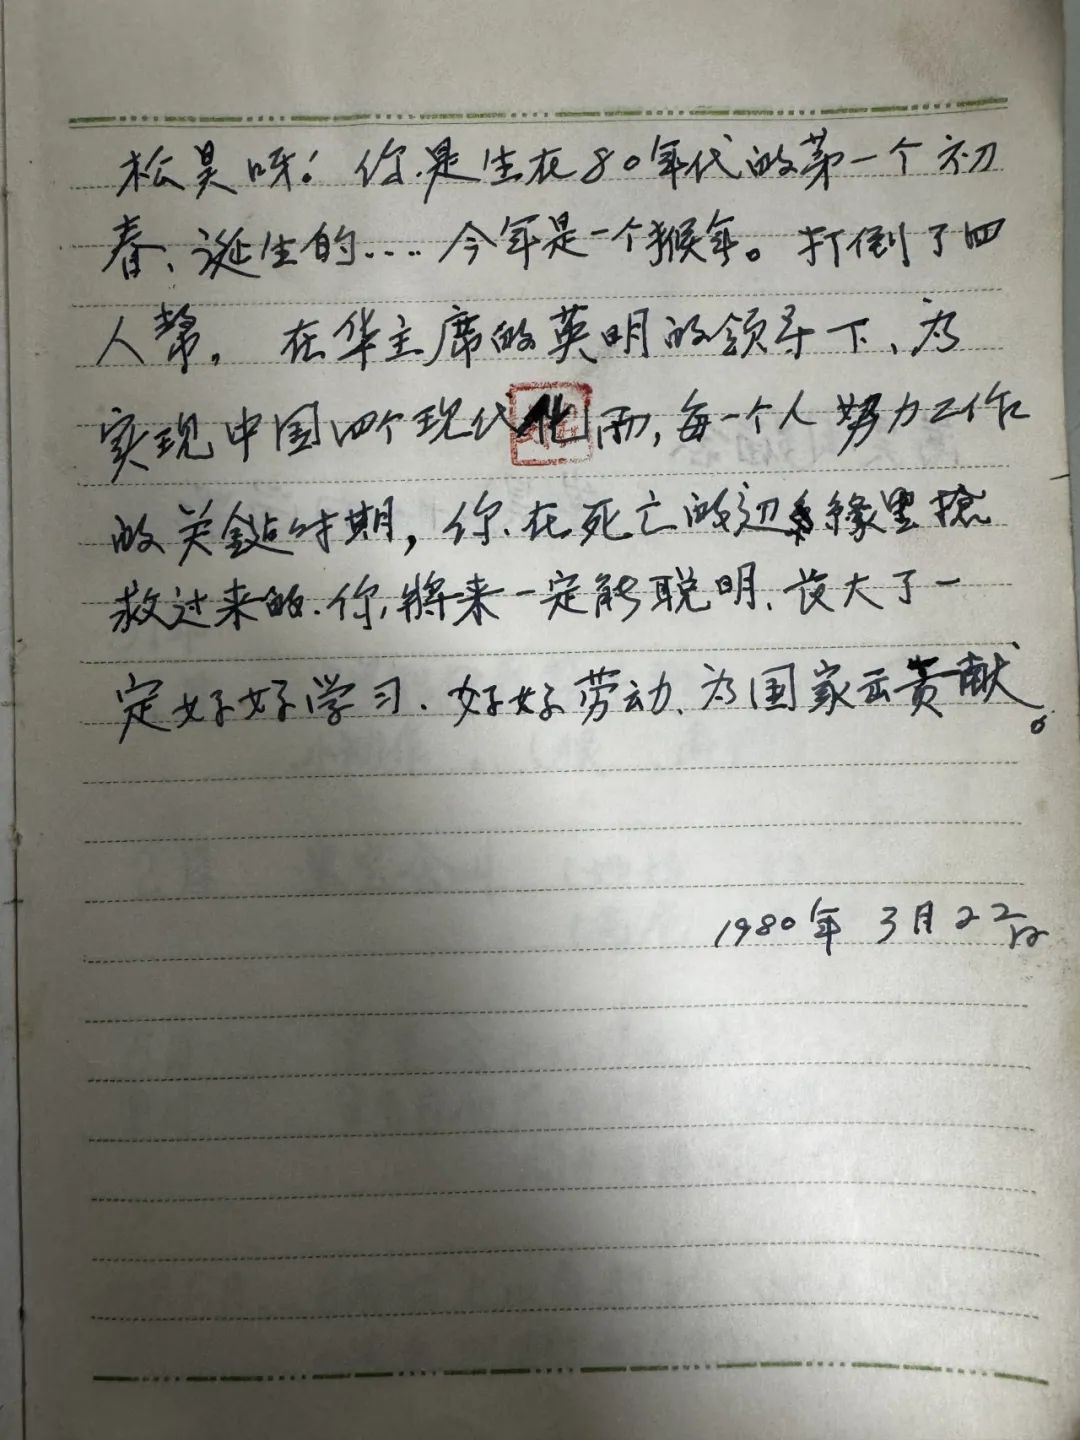 松昊呀！你是生在80年代的第一个初
春、诞生的.... 今年是一个猴年。打倒了四
人帮，在华主席的英明的领导下、为
实现中国四个现代化而，每一个人努力工作
的关键时期，你、在死亡的边缘里抢
救过来的.你,将来一定能聪明、长大了一
定好好学习.好好劳动、为国家贡献。
1980年3月22日